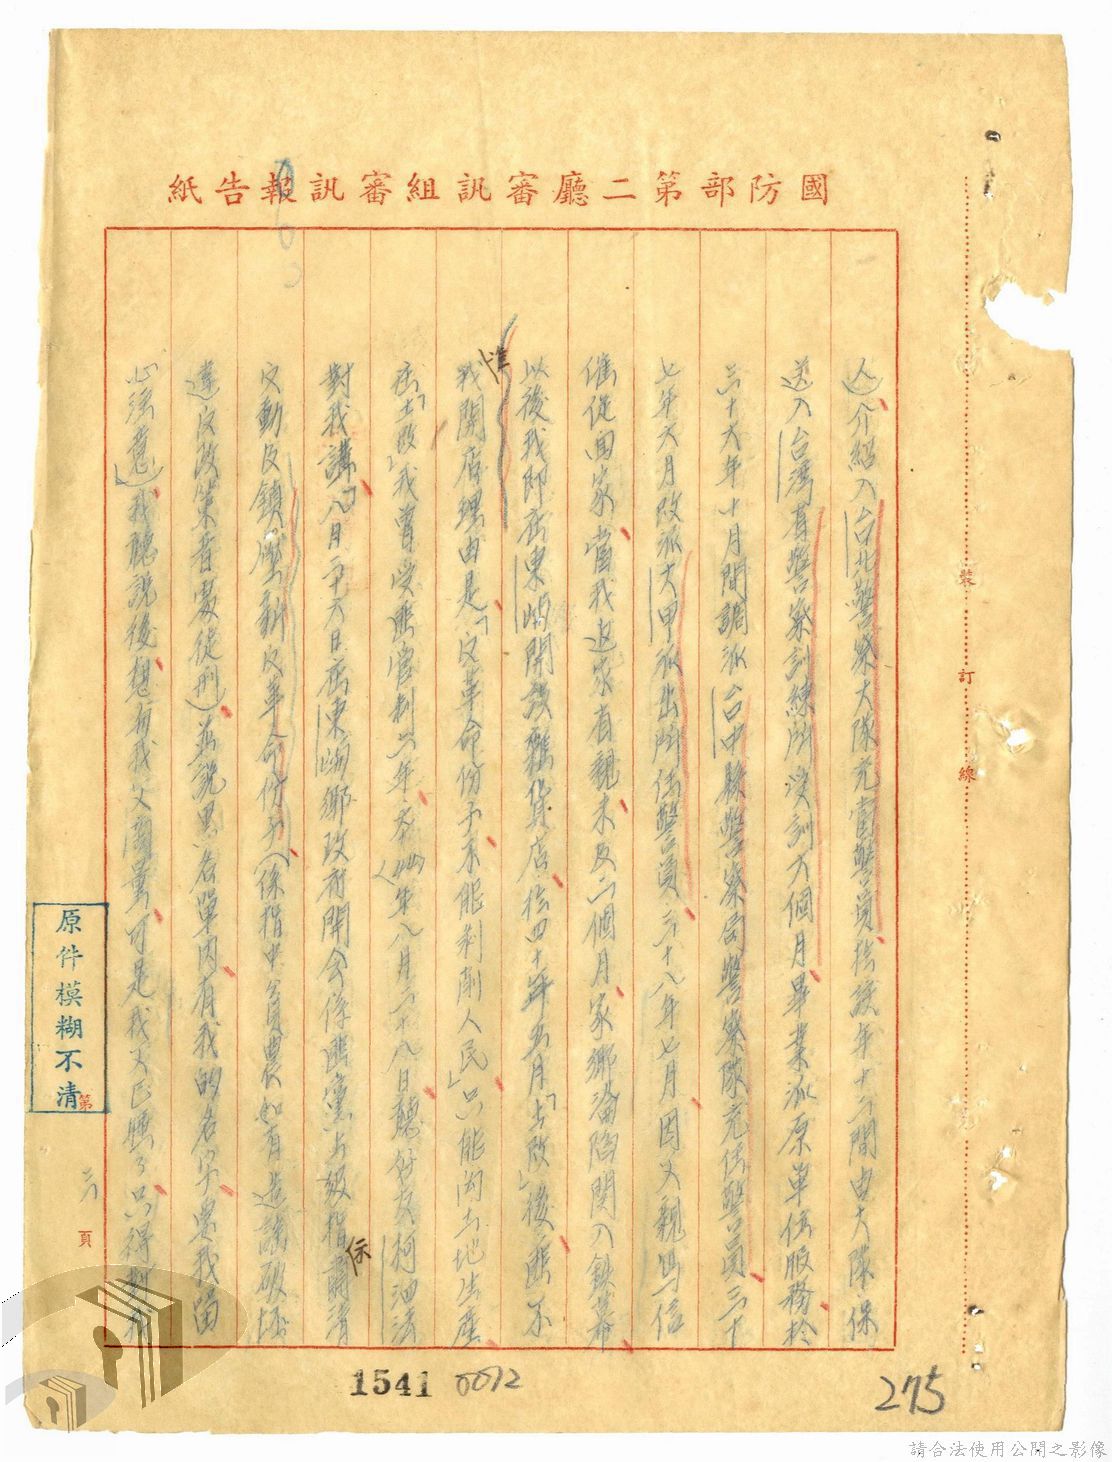 國防部第二廳審訊組審訊報告紙
人)介紹入台北警察大隊充當警員於該年十二間由大隊保
送入台灣省警察訓練所受訓六個月畢業派原單位服務於
三十六年十月間調派台中縣警察局警察隊充任警員三十
七年六月改派大甲派出所任警員三十八年七月因父親寫信
催促回家當我返家省親未及二個月家鄉淪陷関入鉄幕
以後我即在東崎開設雜貨店於四十年五月「土改」後匪不
准
我開店理由是「反革命份子不能剥削人民」只能向土地生產
在「土改」我曾受匪管制六年
年八月二十八日聽
柯
對我講「八月二十六日在東崎鄉政府開会係匪黨上級指示肅清
反動及鎮壓新反革命份子(係指中貧農如有造謠破坏
違反政策者處徒刑)並說黑名單内有我的名字要我留
心注意」我聽說後想和我父商量可是我父已
只得
裝訂線
原件模糊不清
第六頁
1541 0072
275
請合法使用公開之影像